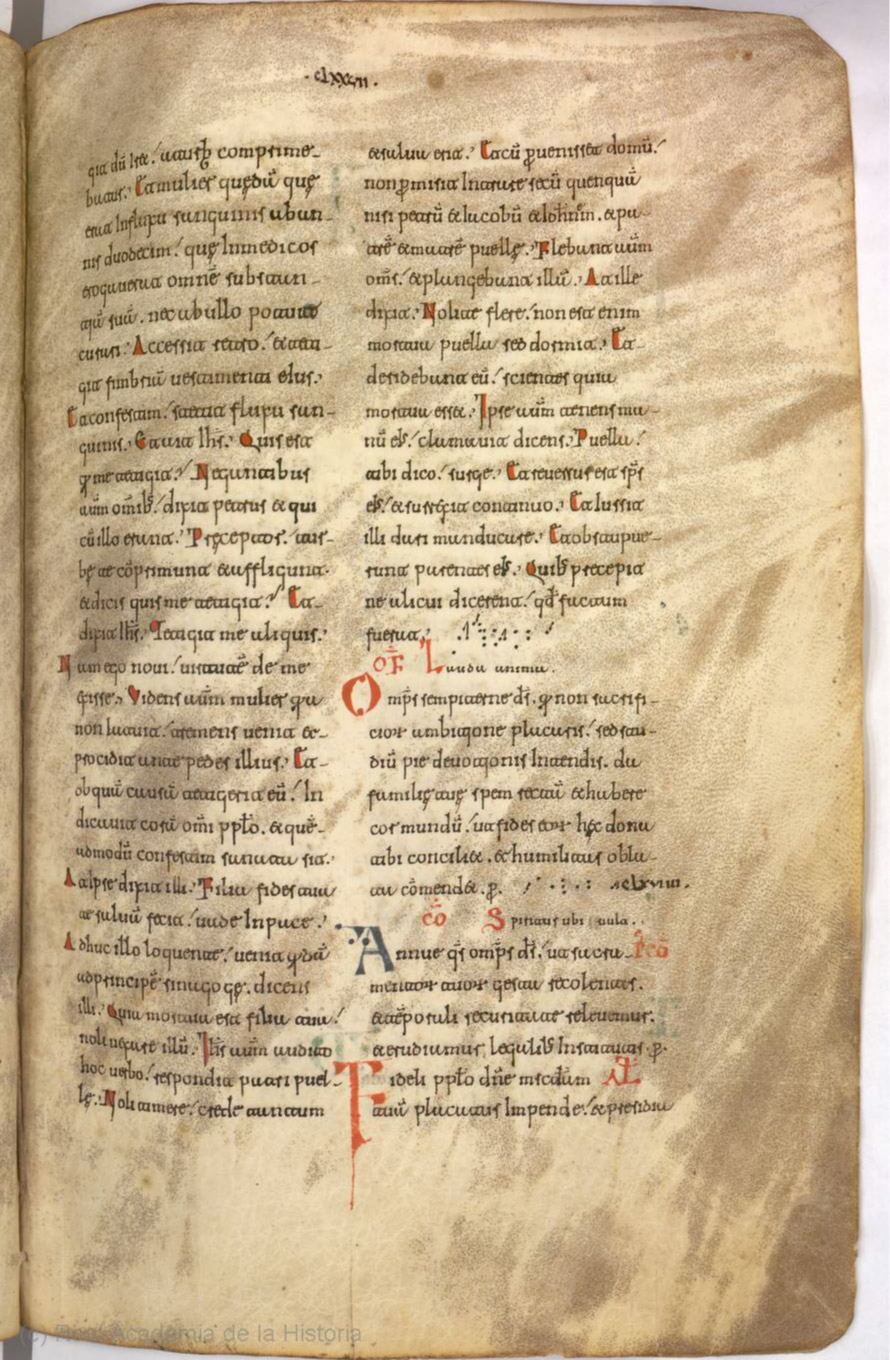 ·clxxvii·
qia dũ iret .' a turbis comprime-
batur. Et mulier quędã quę
erat in fluxu sanguinis ab an-
nis duodecim .' quę in medicos
erogaverat omnẽ substan-
tiã suã . nec ab ullo potuit
curari. Accessit retro .' & teti-
git fimbriã vestimenti eius.
Et confestim .' stetit fluxus san-
guinis. Et ait ihs̃. Quis est
q me tetigit? Negantibus
autm̃ omnib; .' dixit petrus & qui
cũ illo erant. Pręceptor .' tur-
bę te cõprimunt & affligunt.
& dicis quis me tetigit? Et
dixit ihs̃. Tetigit me aliquis.
Nam ego novi .' virtutẽ de me
exisse. Videns autm̃ mulier qa
non latuit .' tremens venit &
procidit ante pedes illius. Et
ob quã causã tetigerit eũ .' in-
dicavit corã omi pplo . & quẽ-
admodũ confestim sanata sit.
At ipse dixit illi. Filia fides tua
te salvã fecit .' vade in pace.
Adhuc illo loquente .' venit qdã
ad principẽ sinagogę . dicens
illi. Quia mortua est filia tua .'
noli vexare illũ. Ihs̃ autm̃ audito
hoc verbo .' respondit patri puel-
lę. Noli timere .' crede tantum
& salva erit. Et cũ pvenisset domũ .'
non pmisit intrare secũ quenquã
nisi petrũ & iacobũ & iohnm̃ . & pa-
trẽ & matrẽ puellę. Flebant autm̃
oms̃ .' & plangebant illã. At ille
dixit. Nolite flere .' non est enim
mortua puella sed dormit. Et
deridebant eũ .' scientes quia
mortua esset. Ipse autm̃ tenens ma-
nũ ei; .' clamavit dicens. Puella .'
tibi dico .' surge. Et reversus est sps̃
ei; .' & surrexit continuo. Et iussit
illi dari manducare. Et obstupue-
runt parentes ei;. Quib; precepit
ne alicui dicerent .' qđ factum
fuerat.
OF̃ Lauda anima.
Omps̃ sempiterne ds̃ . q non sacrifi-
cior ambitione placaris .' sed stu-
diũ pie devotionis intendis . da
familię tuę spem rectã & habere
cor mundũ .' ut fides eor hęc dona
tibi conciliet . & humilitas obla-
ta cõmendet . p.
cõ Spiritus ubi vult.
Annue qs̃ omps̃ ds̃ .' ut sacra-
mentor tuor gesta recolentes.
& tẽporali securitate relevemur.
& erudiamur legalib; institutis . p.
Fideli pplo dñe miscdiam AL̃
tuã placatus impende .' & presidia